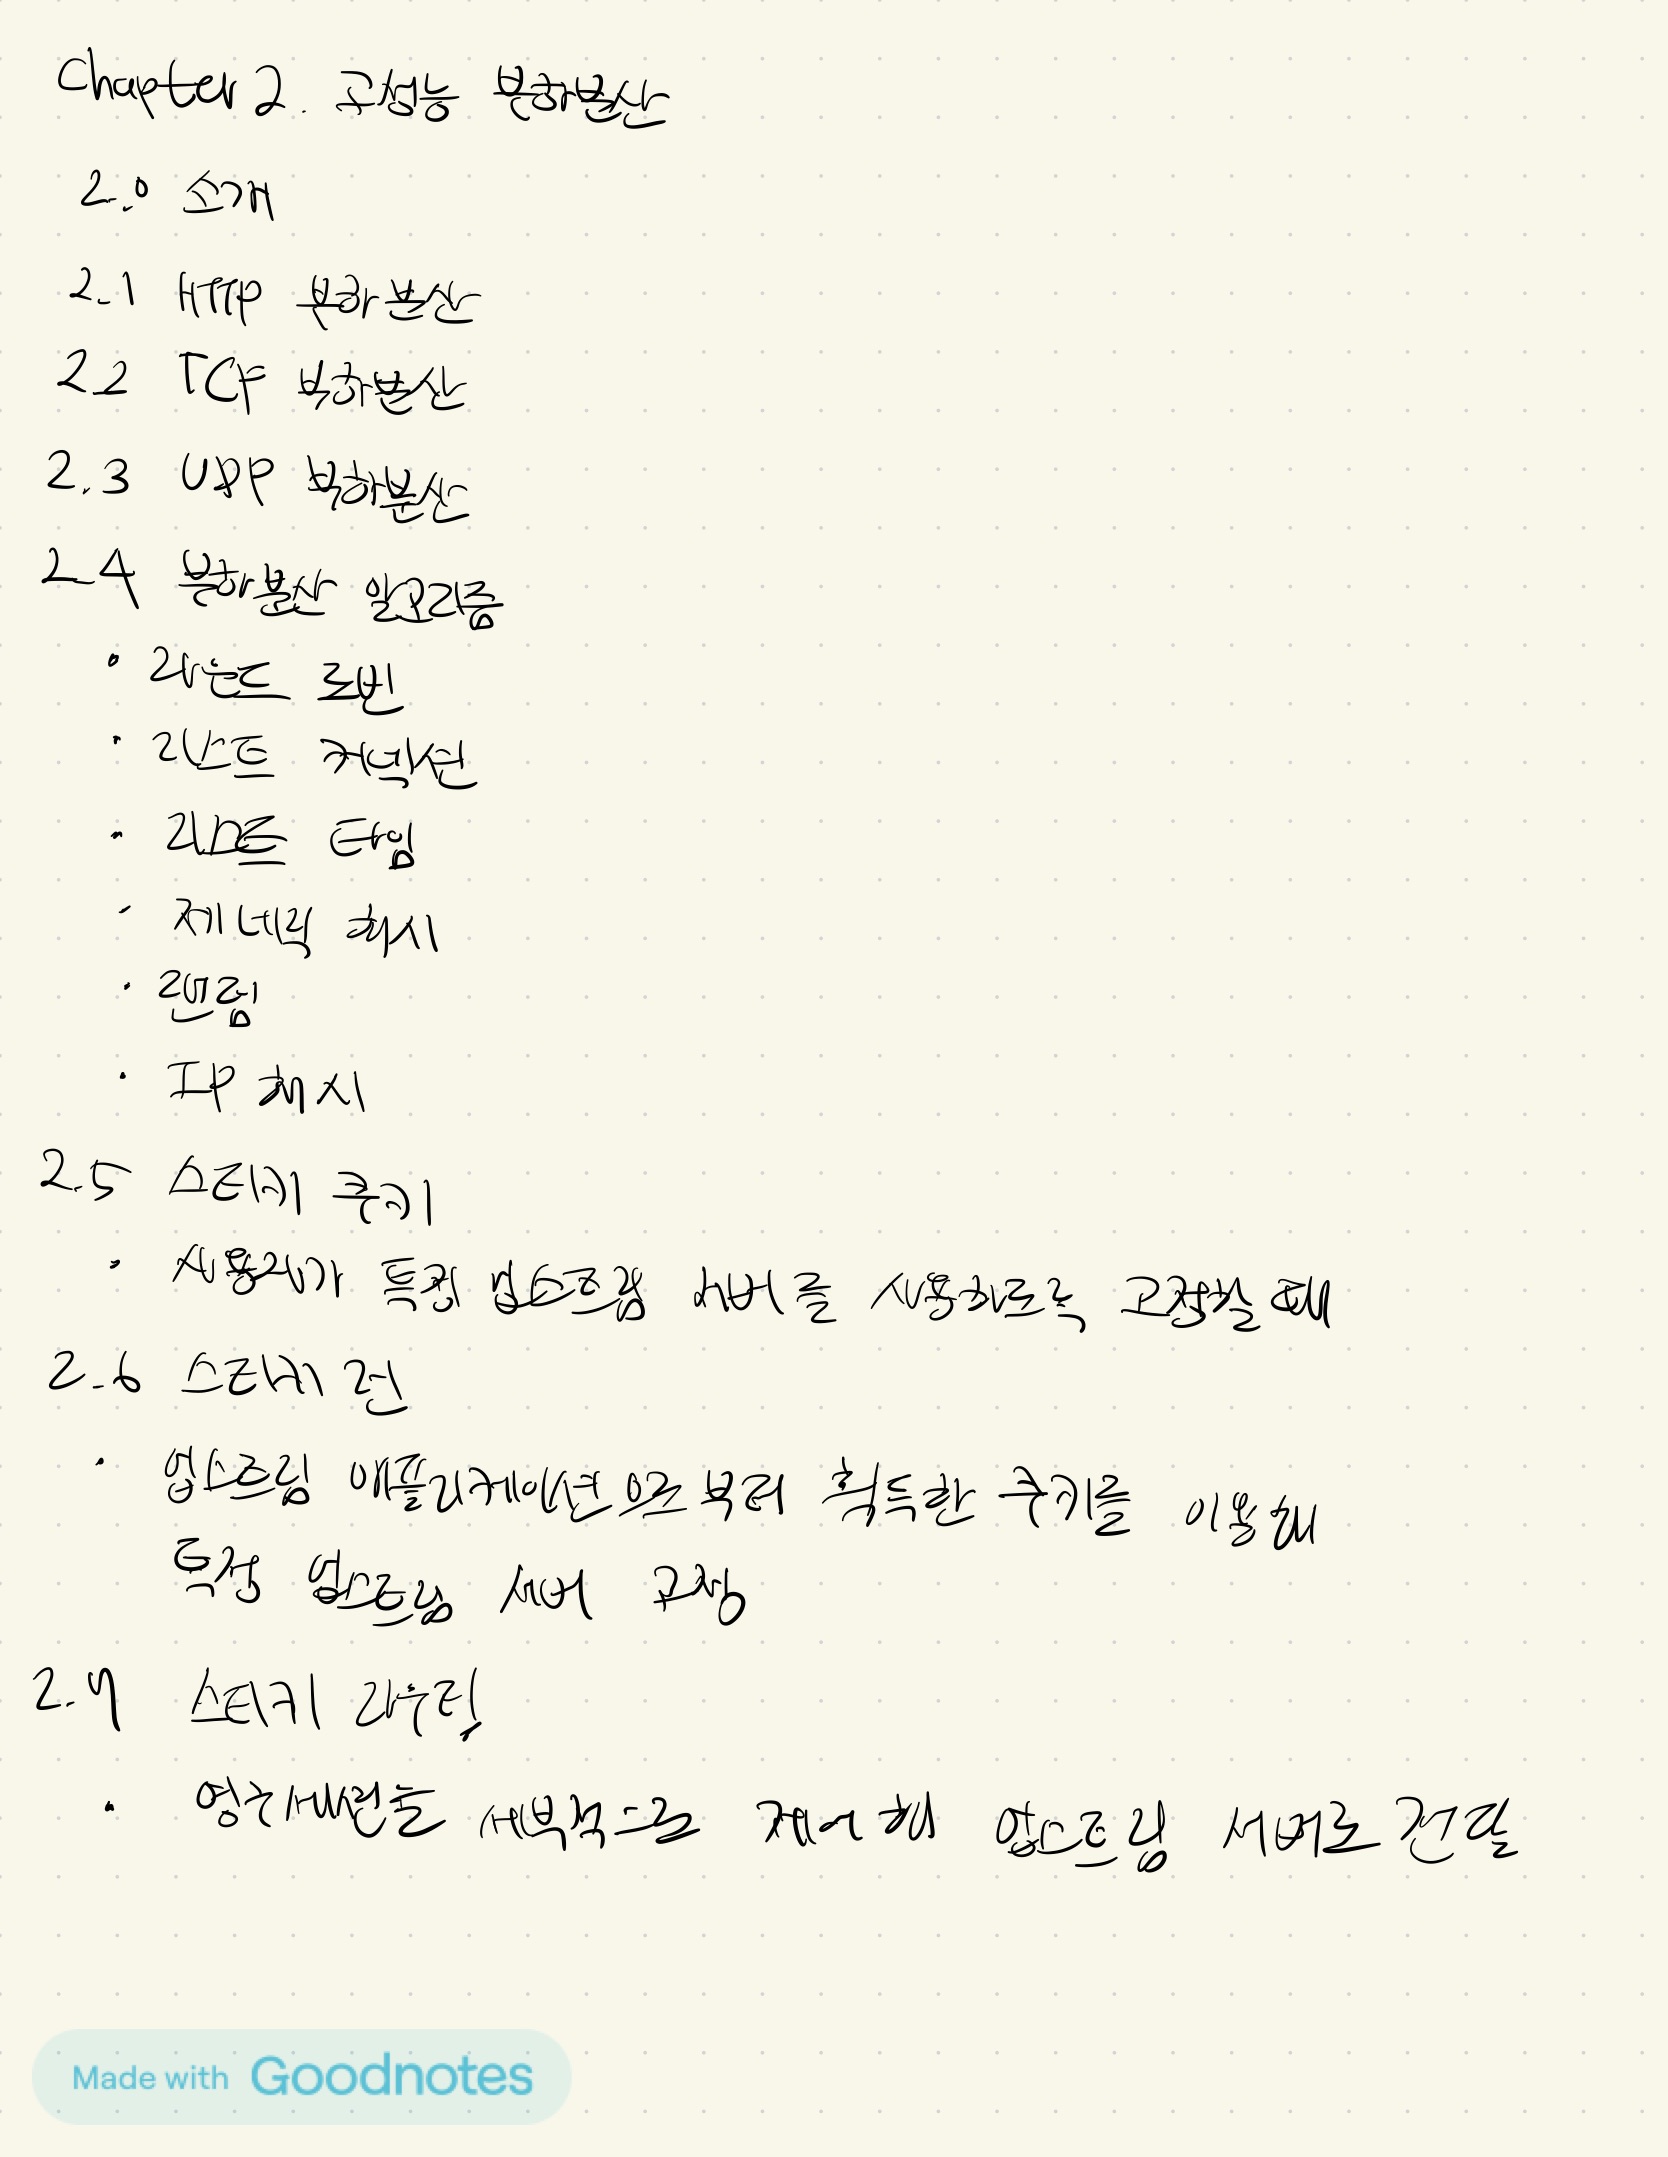 Chapter 2. 고성능 부하분산
2.0 소개
2.1 HTTP 부하분산
2.2 TCP 부하분산
2.3 UDP 부하분산
2.4 부하분산 알고리즘
• 라운드 로빈
• 리스트 커넥션
• 리스트 타임
• 제네릭 해시
• 랜덤
• IP 해시
2.5 스티키 쿠키
• 사용자가 특정 업스트림 서버를 사용하도록 고정할 때
2.6 스티키 런
• 업스트림 애플리케이션으로부터 획득한 쿠키를 이용해
특정 업스트림 서버 고정
2.7 스티키 라우팅
• 영구세션을 세부적으로 제어해 업스트림 서버로 전달
Made with Goodnotes